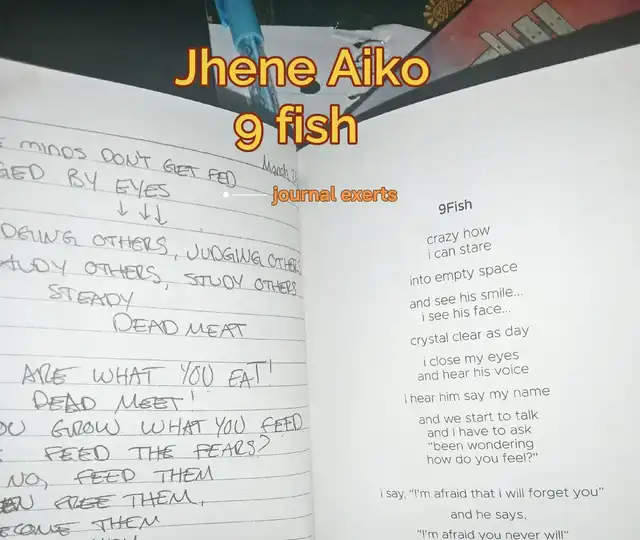 Jhene Aiko
9 fish
journal exerts
MINDS DON'T GET FED
March
BY EYES
↓ ↓↓
OTHERS, JUDGING OTHERS
OTHERS, STUDY OTHERS
STEADY
DEAD MEAT
ARE WHAT YOU EAT!
DEAD MEET!
GROW WHAT YOU FEED
FEED THE FEARS?
NO, FEED THEM
FREE THEM,
THEM
9Fish
crazy how
i can stare
into empty space
and see his smile...
i see his face...
crystal clear as day
i close my eyes
and hear his voice
i hear him say my name
and we start to talk
and i have to ask
"been wondering
how do you feel?"
i say, "I'm afraid that i will forget you"
and he says,
"I'm afraid you never will"